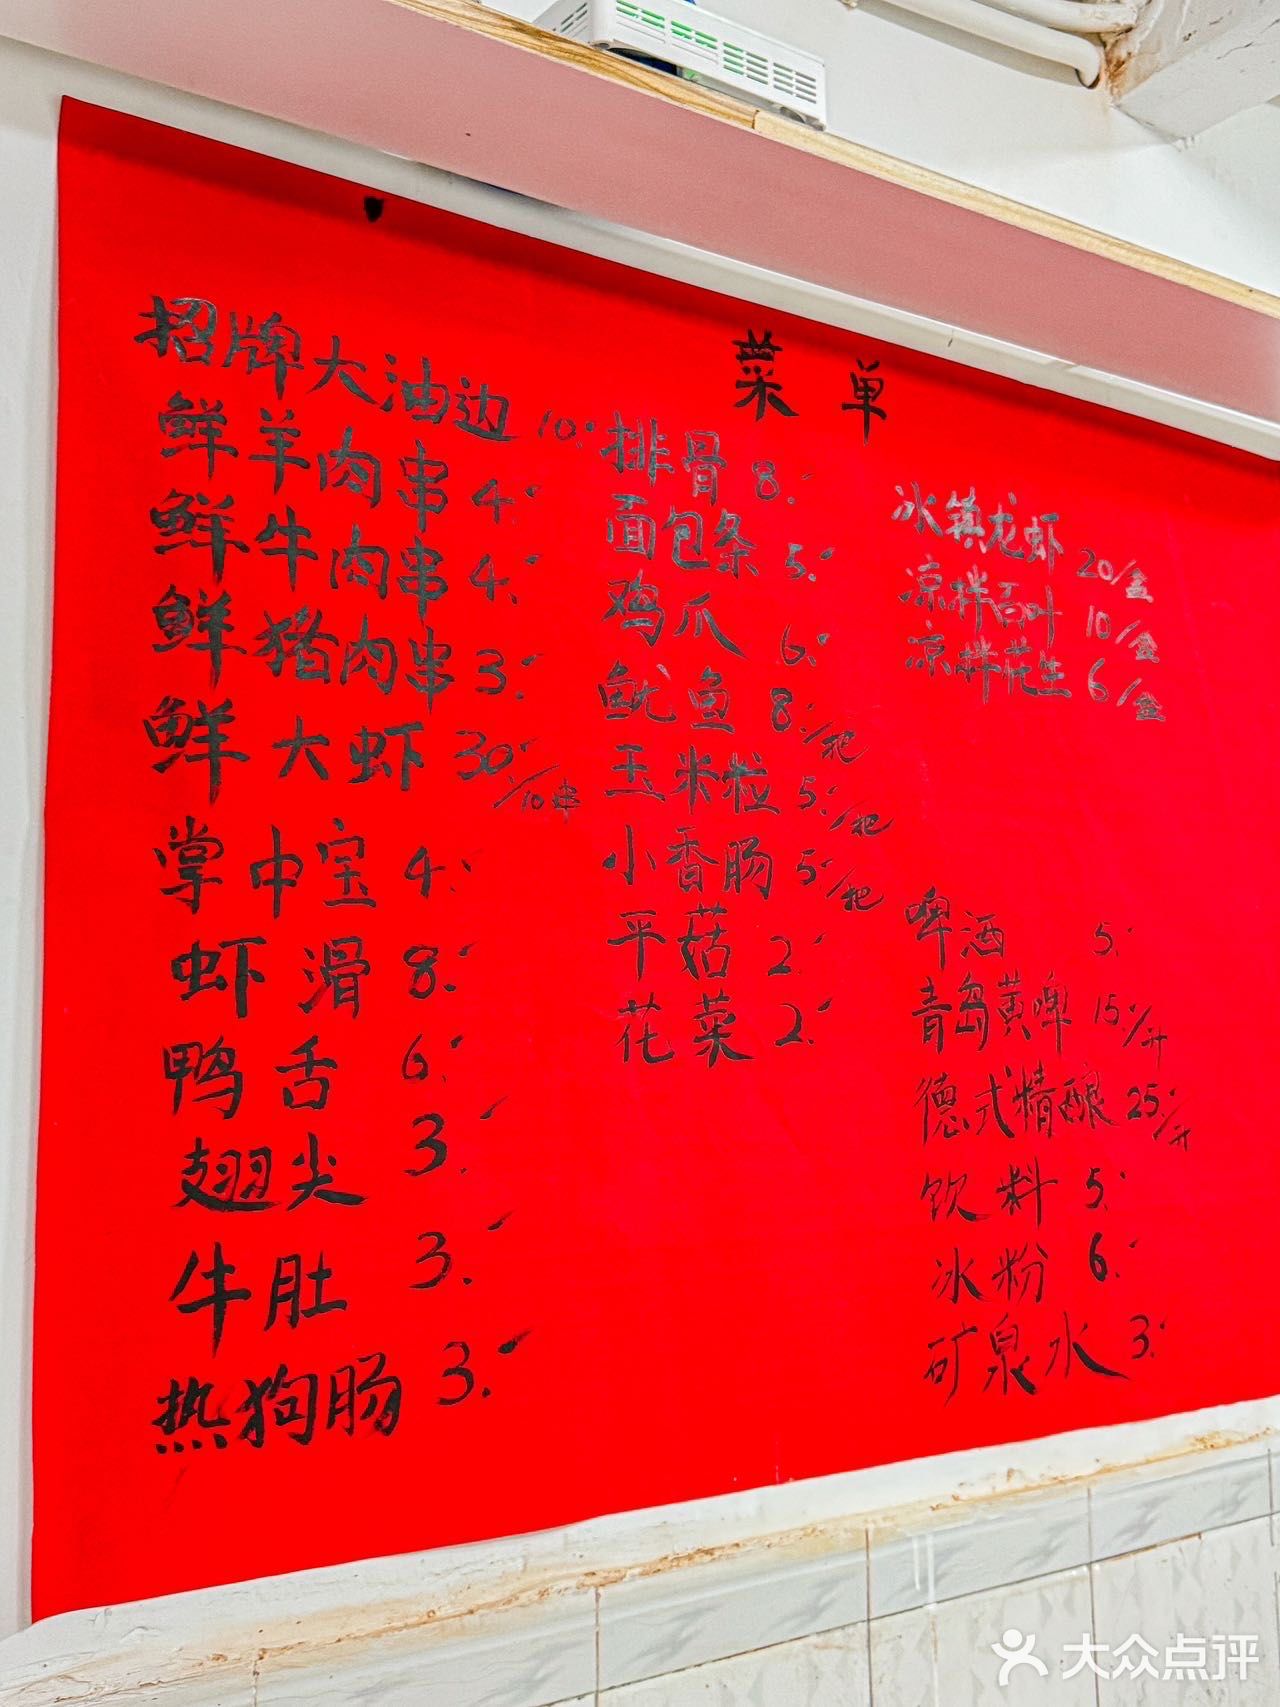 菜单
招牌大油边 10.
鲜羊肉串 4.
鲜牛肉串 4.
鲜猪肉串 3.
鲜大虾 30/10串
掌中宝 4.
虾滑 8.
鸭舌 6.
翅尖 3.
牛肚 3.
热狗肠 3.
排骨 8.
面包条 5.
鸡爪 6.
鱿鱼 8./把
玉米粒 5./把
小香肠 5./把
平菇 2.
花菜 2.
冰镇龙虾 20/盒
凉拌百叶 10/盒
凉拌花生 6/盒
啤酒 5.
青岛黄啤 15./升
德式精酿 25./升
饮料 5.
冰粉 6.
矿泉水 3.
大众点评